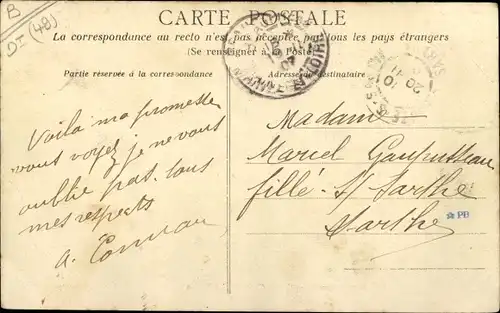 B
DT (48)
CARTE POSTALE
La correspondance au recto n'est pas acceptée par tous les pays étrangers
(Se renseigner à la Poste)
Partie réservée à la correspondance
Adresse du destinataire
Voila ma promesse
vous voyez je ne vous
oublie pas tous
mes respects
a.
Madame
Marcel
fillé s/ Sarthe
Sarthe
PB